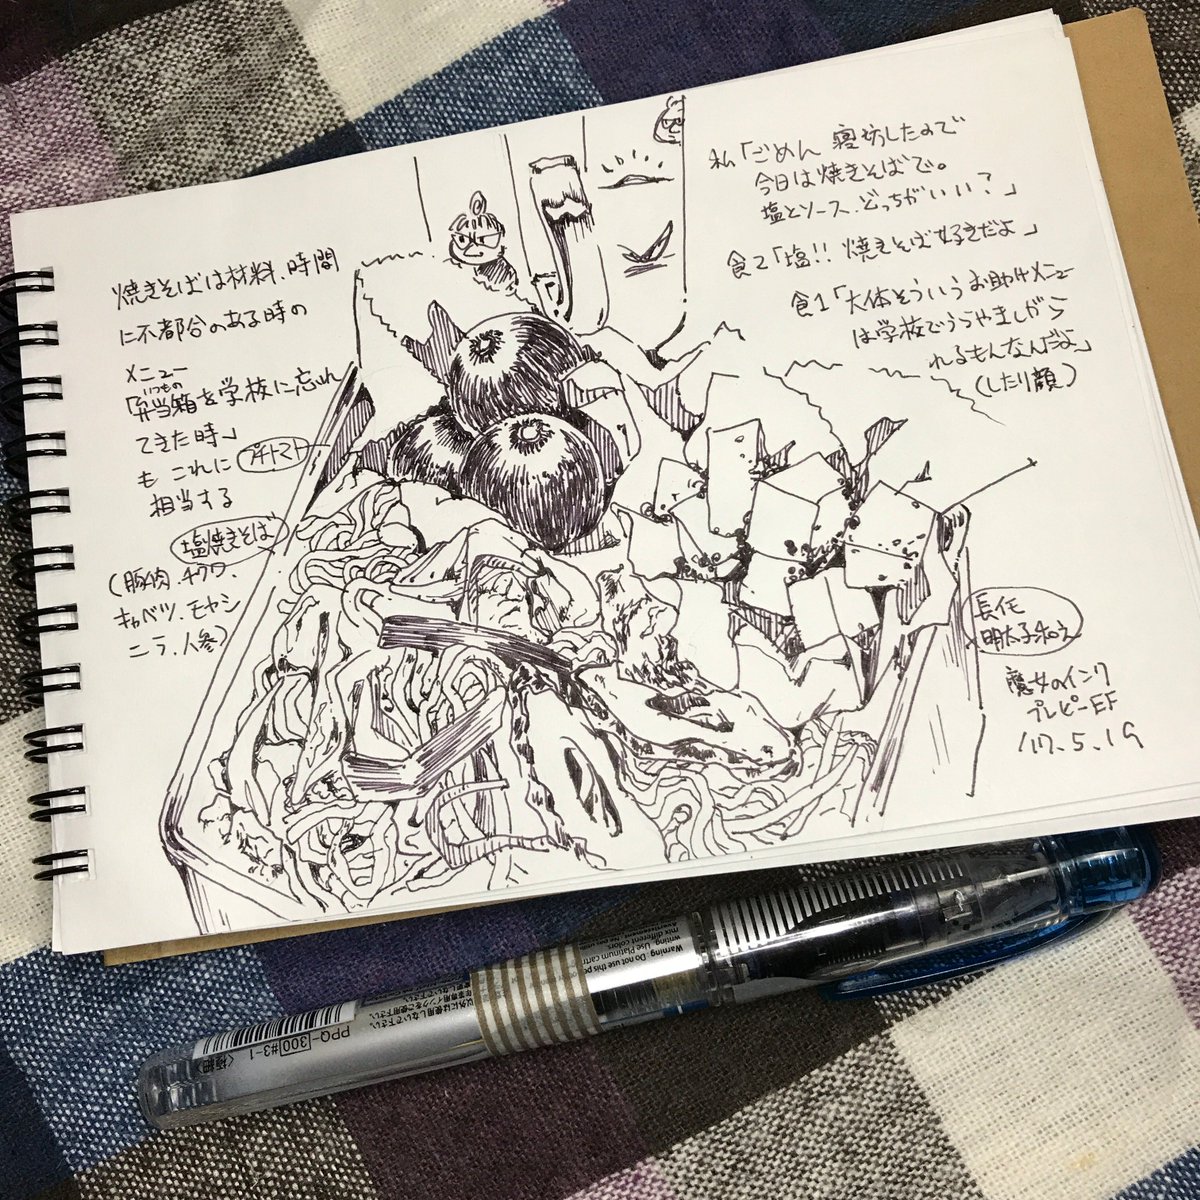 焼きそばは材料、時間
に不都合のある時の
メニュー
いつもの
「弁当箱を学校に忘れ
てきた時」
も これに
相当する
プチトマト
塩焼きそば
(豚肉、チクワ、
キャベツ、モヤシ
ニラ、人参)
私「ごめん 寝坊したので
今日は焼きそばで。
塩とソース、どっちがいい?」
食2「塩!! 焼きそば好きだよ」
食1「大体そういうお助けメニュー
は学校でうらやましがら
れるもんなんだよ」
(したり顔)
長芋
明太子和え
魔女のインク
プレピーEF
'17.5.19
Warning: Do not use this pe
writing. Use Platinum cartr
mix different colors.
以外には使用しないで下さい。
専用インクをご使用下さい。
PPQ-300#3-1
〈極細〉